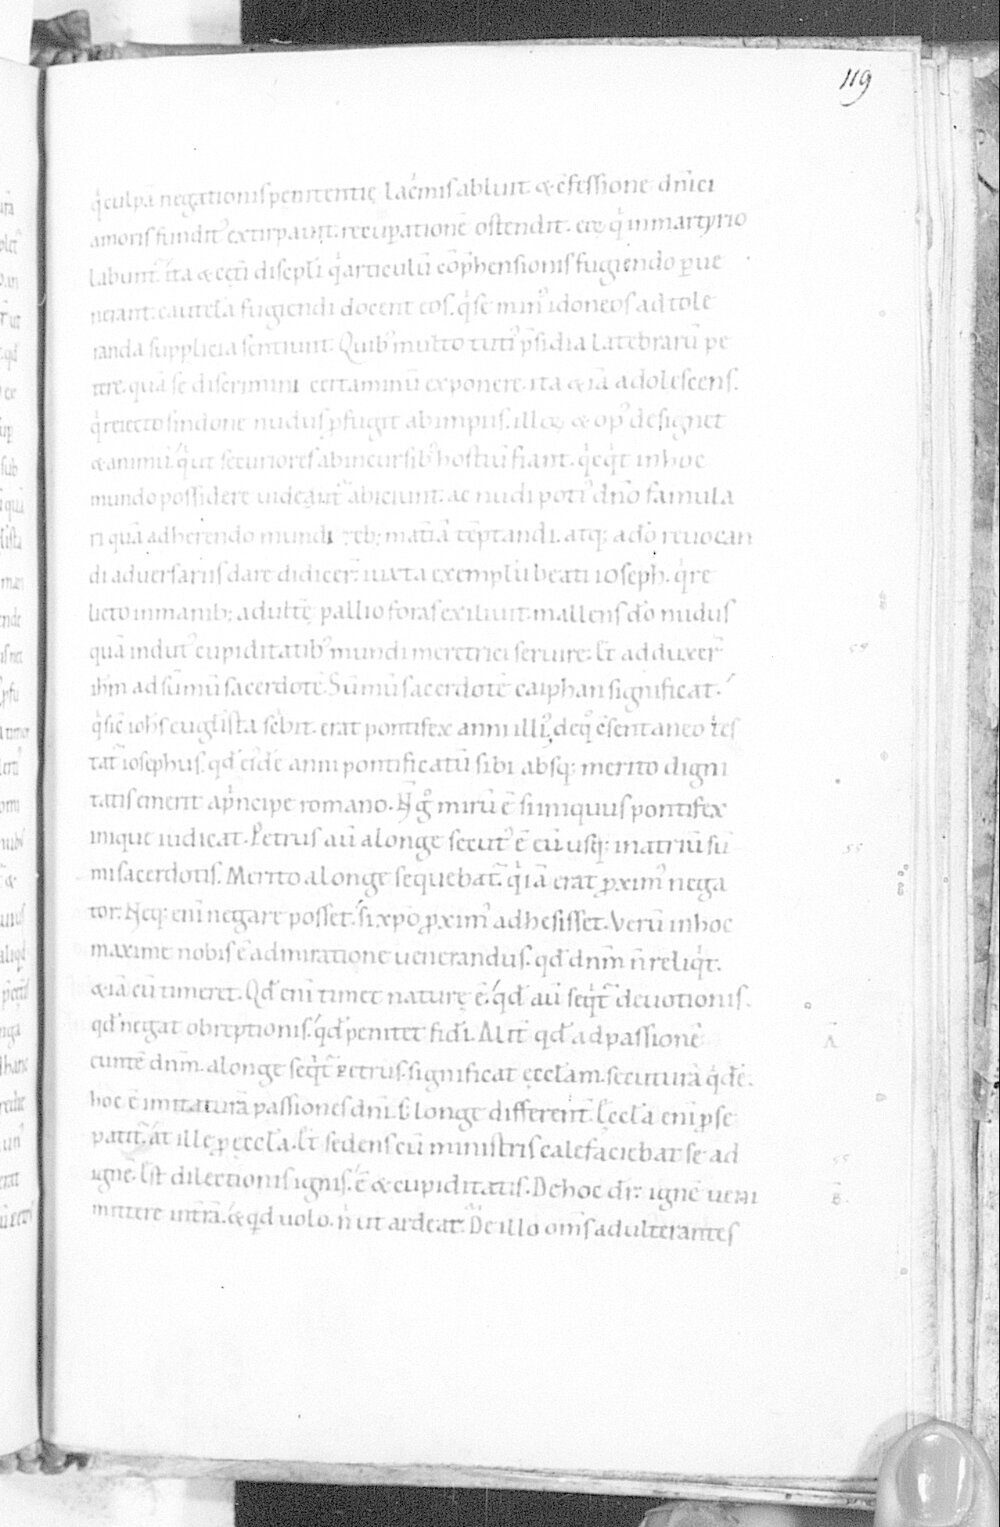 119
q̇ culpā negationis penitentię lac̄mis abluit & c̄fessione dn̄ici
amoris fundit᾽ extirpauit. recuꝑationē ostendit. eoꝝ q̇ in martyrio
labunt̄. ita & cęt̄i discipl̄i q̇ articulū cōp̄hensionis fugiendo p̄ue
nerant. cautelā fugiendi docent eos. q̇ se min᾽ idoneos ad tole
randa supplicia sentiunt. Quib᾽ multo tuti᾽ p̄sidia latebrarū pe
tere. quā se discrimini certaminū exponere. ita & iā adolescens.
q̇ reiecto sindone nudus ꝓfugit ab impiis. illoꝝ & op᾽ designet
& animū. q̇ ut securiores ab incursib᾽ hostiū fiant. q̇cq̇d in hoc
mundo possidere uideant̄ abiciunt. ac nudi poti᾽ dn̄o famula
ri quā adherendo mundi reb; mat̄iā tēptandi. atq; a dō reuocan
di aduersariis dare didicer̄. iuxta exemplū beati ioseph. q̇ re
licto in manib; adult̄ę pallio foras exiliuit. mallens dō nudus
quā indut᾽ cupiditatib᾽ mundi meretrici seruire. Et adduxer̄
ih̄m ad sūmū sacerdotē. Sūmū sacerdotē caiphan significat.
q̇ sic̄ ioh̄s euḡlista sc̄bit. erat pontifex anni illi᾽. de q̇ c̄sentaneo tes
tat̄ iosephus. qd̄ ei᾽dē anni pontificatū sibi absq; merito digni
tatis emerit a p̄ncipe romano. N̄ g᾽ mirū ē si iniquus pontifex
inique iudicat. Petrus aū a longe secut᾽ ē eū usq; in atriū sū
mi sacerdotis. Merito a longe sequebat̄. q̇ iā erat ꝓxim᾽ nega
tor. Neq; eni negare posset. si xp̄o ꝓxim᾽ adhesisset. Verū in hoc
maxime nobis ē admiratione uenerandus. qd̄ dn̄m n̄ reliq̇t.
& iā cū timeret. Qd̄ eni timet naturę ē. qd̄ aū seq̇t̄ deuotionis.
qd̄ negat obreptionis. qd̄ penitet fidi. Alit̄ qd̄ ad passionē
euntē dn̄m. a longe seq̇t̄ petrus. significat ęccl̄am. secuturā q̇dē.
hoc ē imitaturā passiones dn̄i. s; longe different̄. Ęccl̄a eni ꝓ se
patit̄. at ille ꝓ ęccl̄a. Et sedens cū ministris calefaciebat se ad
ignē. Est dilectionis ignis. ē & cupiditatis. De hoc dr̄. ignē ueni
mittere in t̄rā. & qd̄ uolo. n̄ ut ardeat. De illo om̄s adulterantes